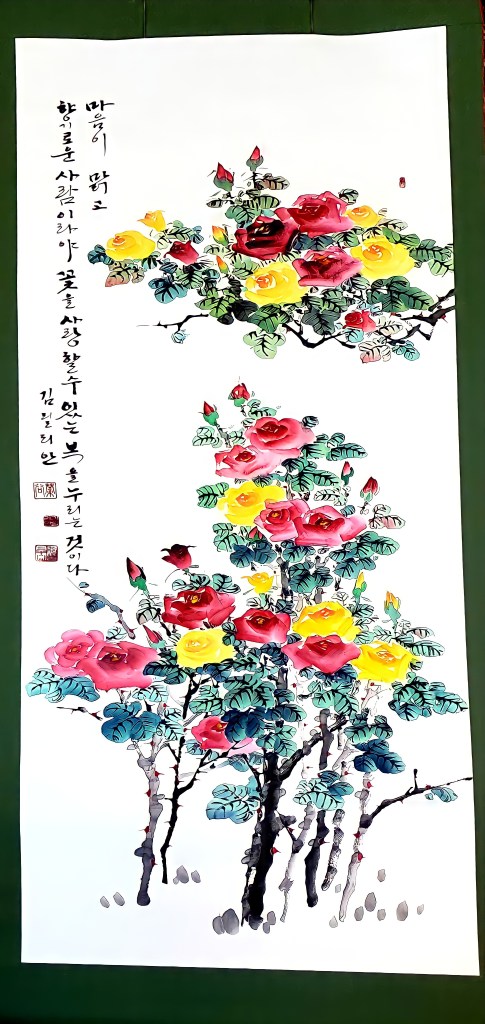 마음이 맑고
향기로운 사람이라야 꽃을 사랑할 수 있는 복을 누리는 것이다
김 릴리안